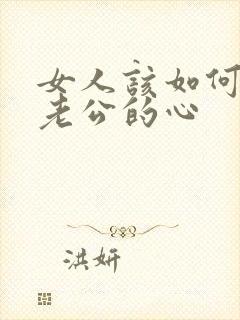 女人该如何
老公的心
洪妍